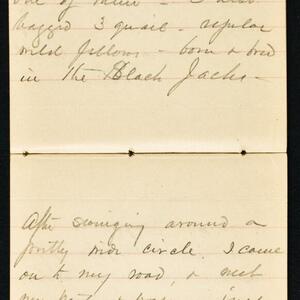 out of
bagged 3 quail - regular
wild fellows - born & bred
in the Black Jacks -
After swinging around a
pretty wide circle, I came
on to my road, & met
my